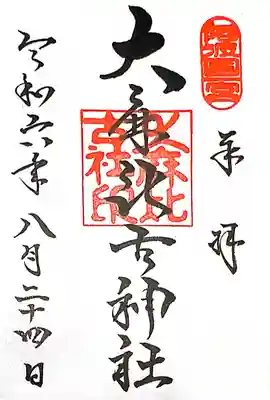 奉拝
大麻比古神社
大麻比
古社印
令和六年八月二十四日